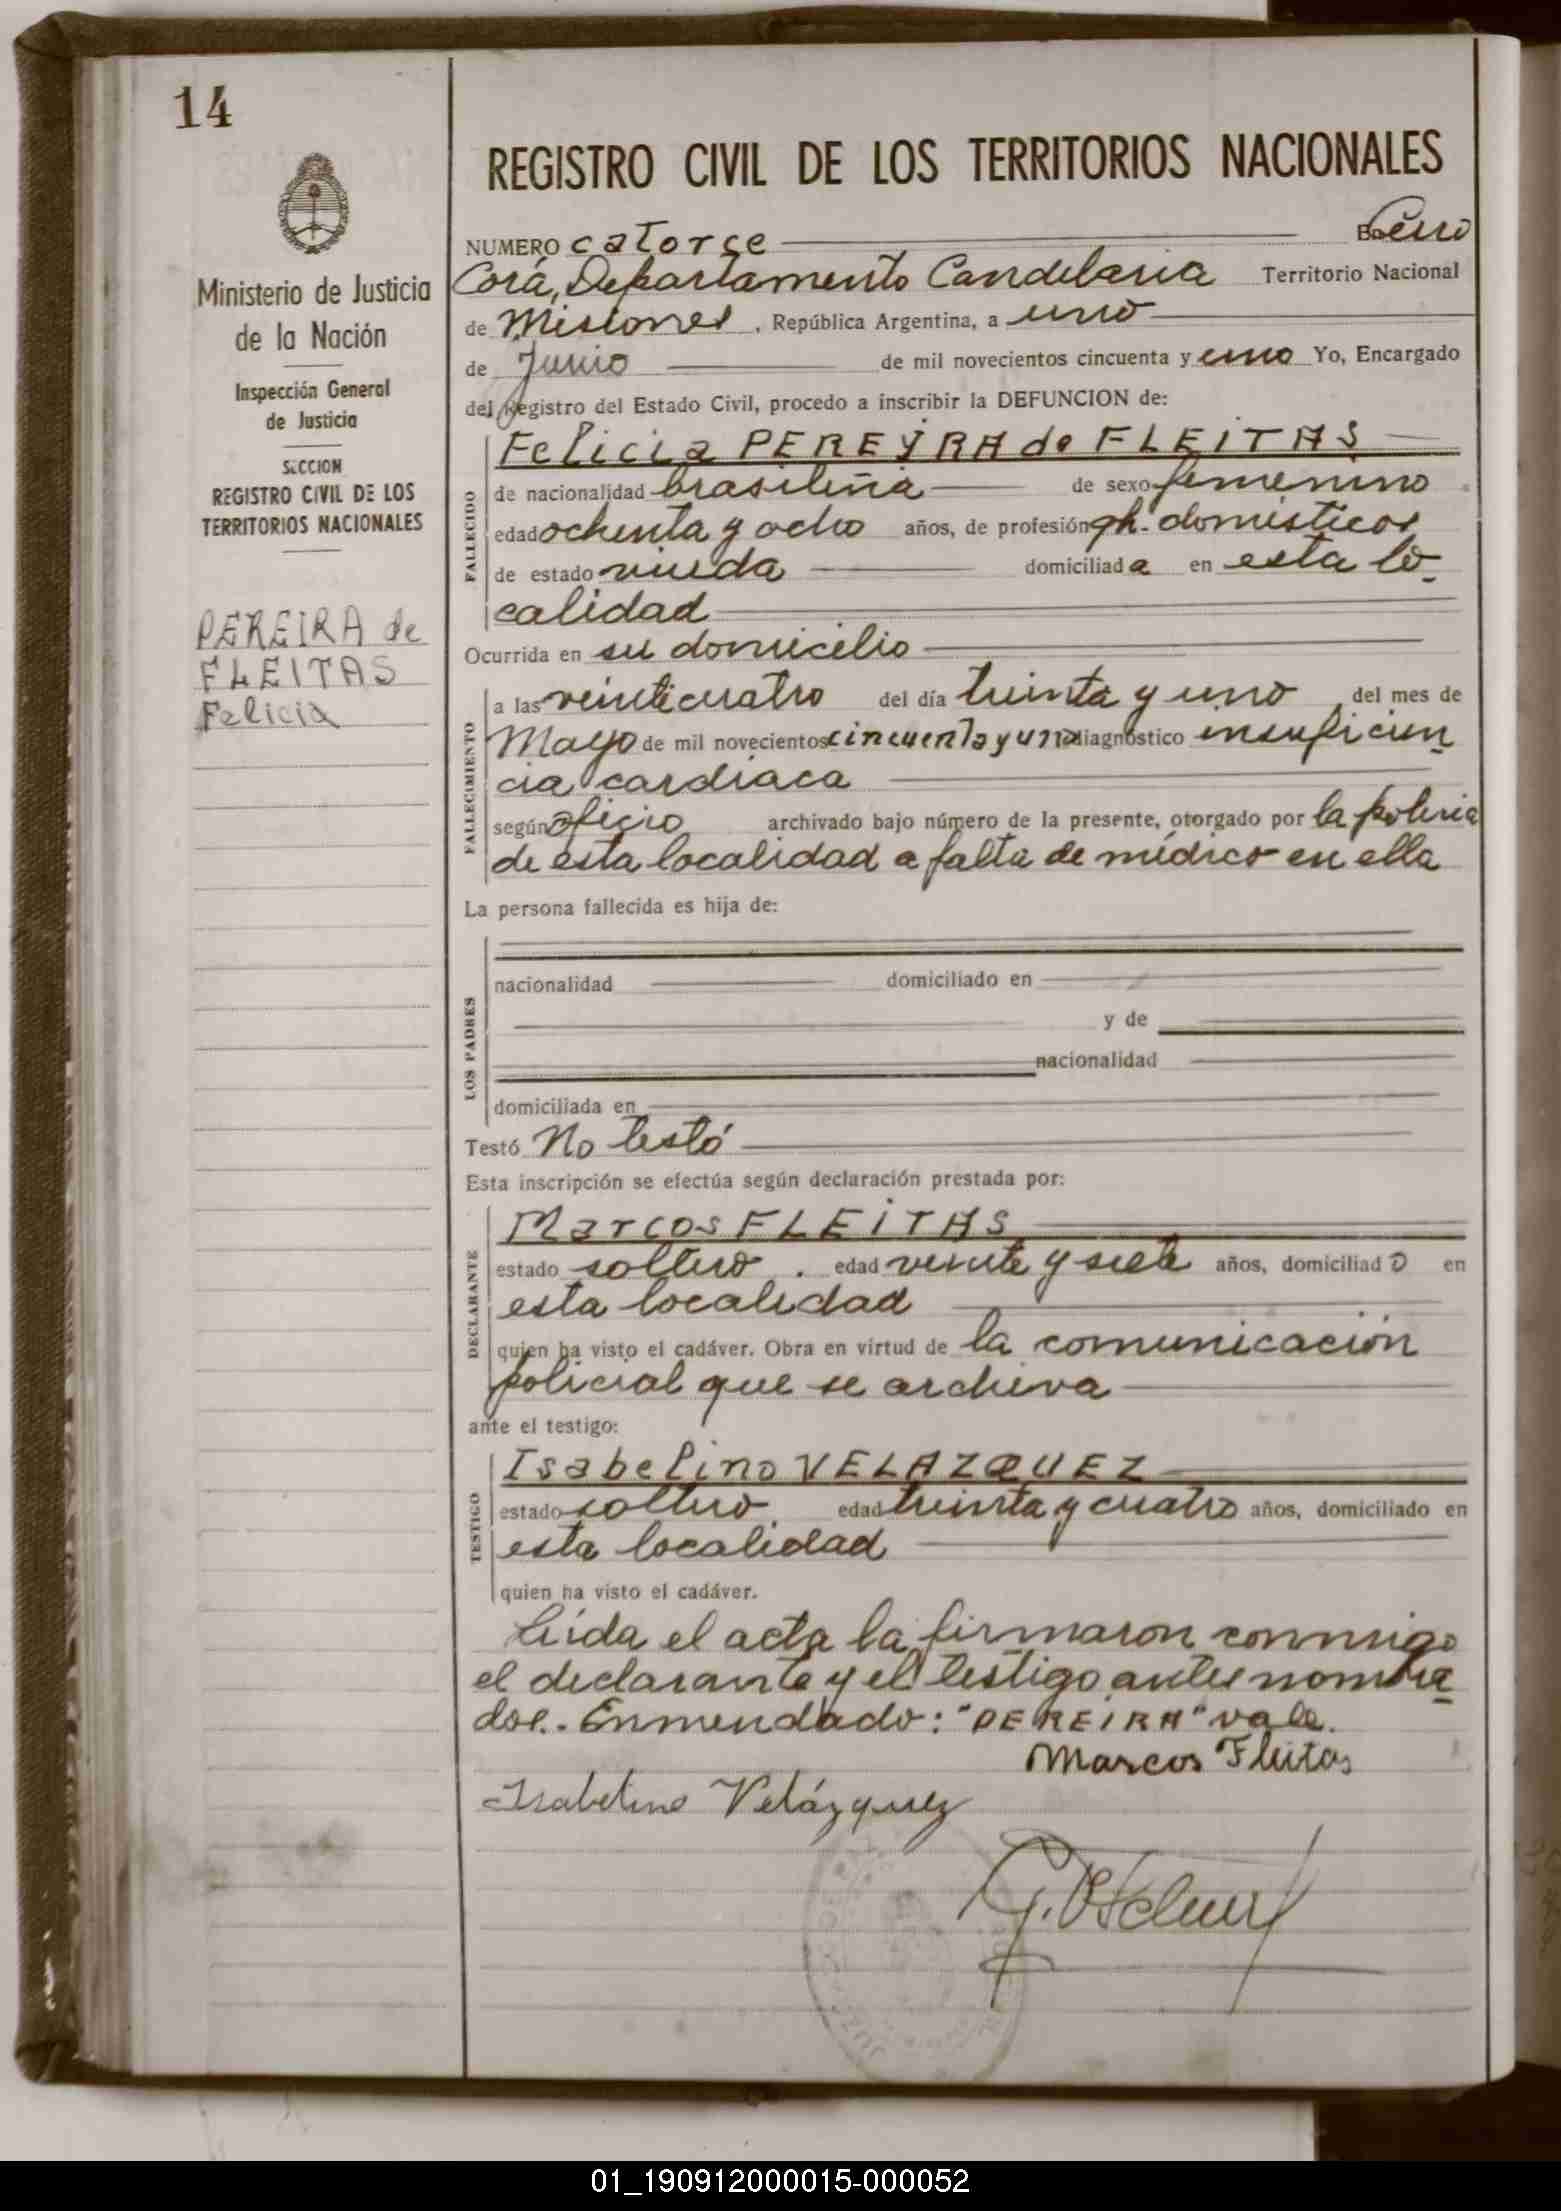 14
Ministerio de Justicia
de la Nación
Inspección General
de Justicia
SECCION
REGISTRO CIVIL DE LOS
TERRITORIOS NACIONALES
PEREIRA de
FLEITAS
Felicia
REGISTRO CIVIL DE LOS TERRITORIOS NACIONALES
NUMERO catorce En Cerro
Corá, Departamento Candelaria Territorio Nacional
de Misiones, República Argentina, a uno
de Junio de mil novecientos cincuenta y uno Yo, Encargado
del Registro del Estado Civil, procedo a inscribir la DEFUNCION de:
Felicia PEREYRA de FLEITAS
FALLECIDO
de nacionalidad brasileña de sexo femenino
edad ochenta y ocho años, de profesión qh. domésticos
de estado viuda domiciliada en esta lo-
calidad
Ocurrida en su domicilio
FALLECIMIENTO
a las veinticuatro del día treinta y uno del mes de
Mayo de mil novecientos cincuenta y uno diagnóstico insuficien
cia cardiaca
según oficio archivado bajo número de la presente, otorgado por la policia
de esta localidad a falta de médico en ella
La persona fallecida es hija de:
LOS PADRES
nacionalidad domiciliado en
y de
nacionalidad
domiciliada en
Testó No testó
Esta inscripción se efectúa según declaración prestada por:
DECLARANTE
Marcos FLEITAS
estado soltero. edad veinte y siete años, domiciliado en
esta localidad
quien ha visto el cadáver. Obra en virtud de la comunicación
policial que se archiva
ante el testigo:
TESTIGO
Isabelino VELAZQUEZ
estado soltero. edad treinta y cuatro años, domiciliado en
esta localidad
quien ha visto el cadáver.
Leída el acta la firmaron conmigo
el declarante y el testigo antes nombra
dos.- Enmendado: "PEREIRA" vale.
Marcos Fleitas
Isabelino Velázquez
01_190912000015-000052